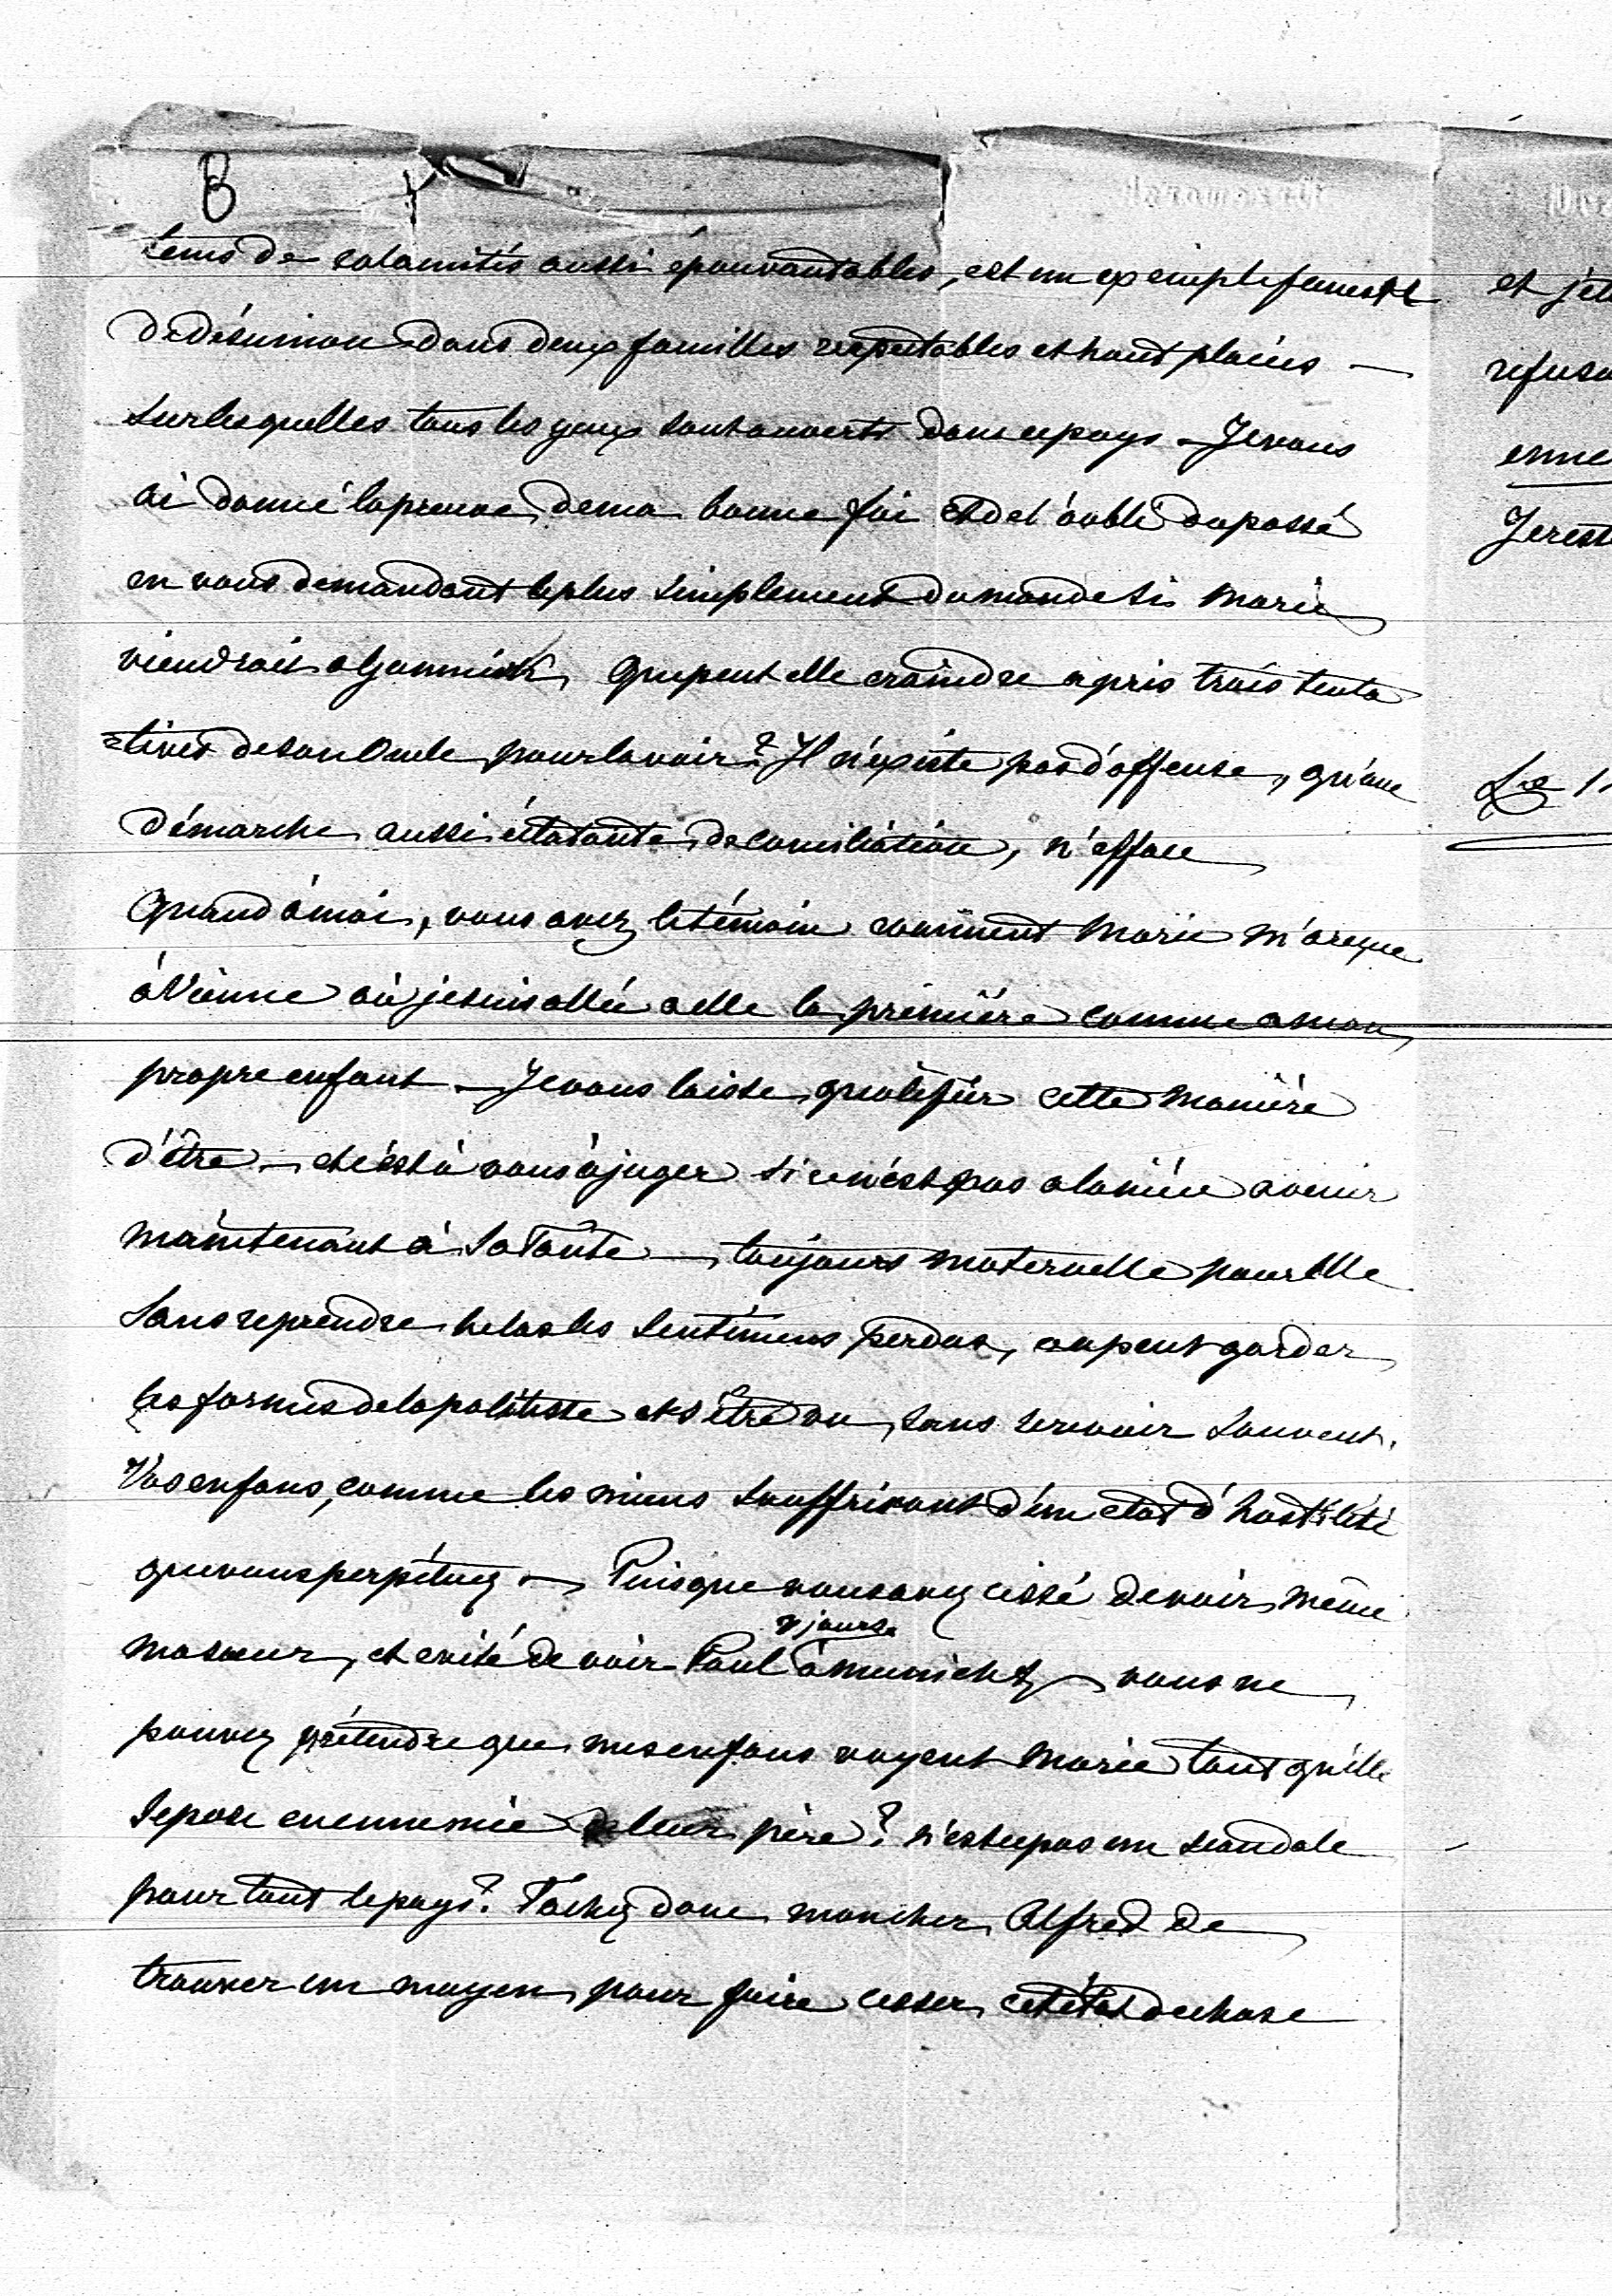 B
tems de calamités aussi épouvantables, est un exemple funeste
de désunion dans deux familles respectables et haut placées —
sur lesquelles tous les yeux sont ouverts dans ce pays — Je vous
ai donné la preuve de ma bonne foi et de l'oubli du passé
en vous demandant le plus simplement du monde si Marie
viendrait a que peut elle craindre après trois tenta
=tives de son Oncle pour la voir? Il n'existe pas d'offense, qu'une
démarche aussi éclatante de conciliation, n'efface
Quand à moi, vous avez été témoin comment Marie m'a reçue
à Vienne où je suis allée a elle la première comme a mon
propre enfant — Je vous laisse qualifier cette manière
d'être — et c'est à vous à juger si ce n'est pas a la nièce a venir
maintenant à sa Tante — toujours maternelle pour Elle
Sans reprendre helas les sentimens perdus, on peut garder
les formes de la politesse et s'être vu, sans se revoir souvent.
Vos enfans, comme les miens souffriront d'un etat d'hostilité
que vous perpétuez — Puisque vous avez cessé de voir même
ma soeur, et evité de voir Paul à Munich — vous ne
jours
pouvez prétendre que mes enfans voyent Marie tant qu'elle
se pose en ennemie de leur père? n'est ce pas un scandale
pour tout le pays? Tachez donc mon cher Alfred de
trouver un moyen pour faire cesser cet état de chose
et
Le